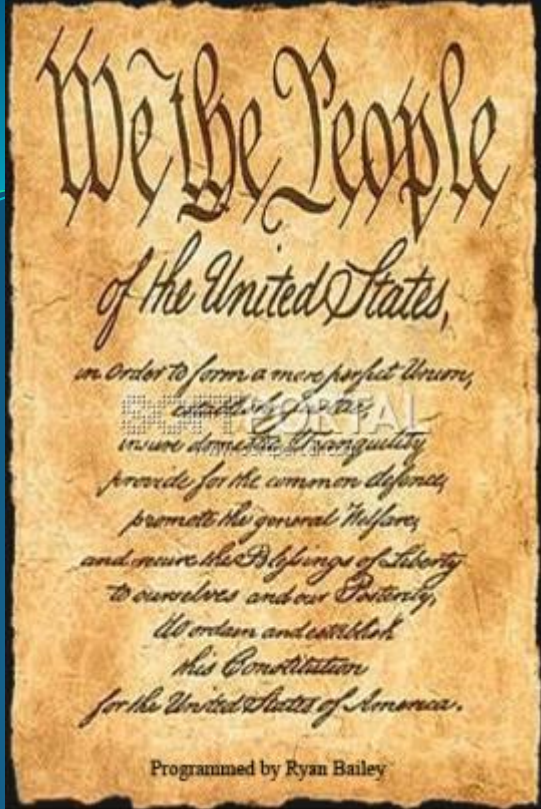 We the People
of the United States,
in Order to form a more perfect Union,
establish Justice,
SOFTPORTAL
insure domestic Tranquility
provide for the common defence,
promote the general Welfare,
and secure the Blessings of Liberty
to ourselves and our Posterity,
do ordain and establish
this Constitution
for the United States of America.
Programmed by Ryan Bailey